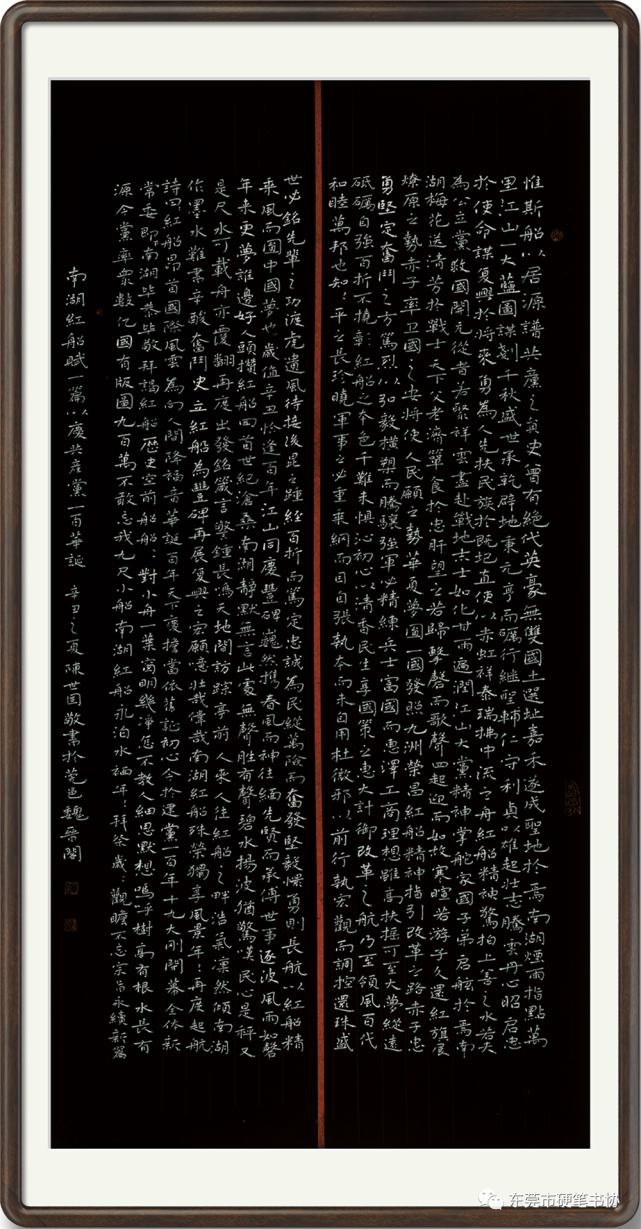 惟斯船以居源譜共産之英史曾有絕代英豪無雙國士選址嘉禾遂成聖地於焉南湖煙雨指點萬
里江山一大藍圖謀划千秋盛世承乾辟地秉元亨而礪行繼聖輔仁守利貞以雄起壯志騰雲丹心昭启忠
於使命謀复興於將來勇為人先扶民族於既圮直使以赤虹祥泰瑞拂中流之舟紅船精神驚拍上善之水若夫
為公立黨救國開元從昔若聚祥雲盡赴戰地志士如化甘雨遍潤江山大黨精神掌舵家國子弟启舷於焉南
湖梅花送清芳於戰士天下父老濟簞食於忠肝望之若歸擊磬而歌聲四起迎而如故寒暄若游子久還紅旗展
燎原之勢赤子率卫國之安將使人民願之勢華夏夢圆一國發照九洲榮昌紅船精神指引改革之路赤子忠
勇堅定奮鬥之方篤烈以弘毅橫塑而騰驤強軍必精練兵士富國而惠澤工商理想雖高扶摇可至大夢縱遠
砥礪自強百折不撓彰紅船之本色千難未惧沁初心以清香民生享國策之惠大計御改革之航乃至領風百代
和睦萬邦也知之平之長於曉軍事之必重乘綱而目自張執本而末自用杜微邪以前行執宏觀而調控還珠盛
世必銘先辈之功渡產遺風待接後昆之踵經百折而篤定忠誠為民從萬險而奮發堅毅懷勇則長航以紅船精
乘風而圆中國夢也歲值辛丑恰逢百年江山同慶豐碑巍然携春風而神往緬先賢而承傳世事逐波風雨如磐
年来更夢誰邊好人頭攢紅船回首世紀滄桑南湖靜默無言山處無聲胜有聲碧水揚波猶驚漢民心是秤又
是尺水可載舟亦覆翻再度出發銘箴言警鍾長鳴天地間訪踪亭前人来人往紅船之畔浩氣凛然傾南湖
作墨水難書辛酸奮鬥史立紅船為豐碑再展復興之宏願噫壯哉偉哉南湖紅船殊榮獨享風景年年再度起航
詩曰紅船昂首國際風雲為向人間降福音華誕百年天下慶擔當依舊証初心今於建黨一百年十九大刚開幕全体新
常委即南湖毕恭毕敬拜謁紅船歷史空前船船之對小舟一葉窗明幾净怎不教人細思默想嗚呼樹高有根水長有
源今黨率衆數亿國有版圖九百萬不敢忘我九尺小船南湖紅船永泊水湄年年拜於歲歲觀瞻不忘宗旨永續新篇
南湖紅船賦一篇以慶共産黨一百華誕 辛丑之夏陳世国敬書於莞邑魏晉閣
东莞市硬笔书协